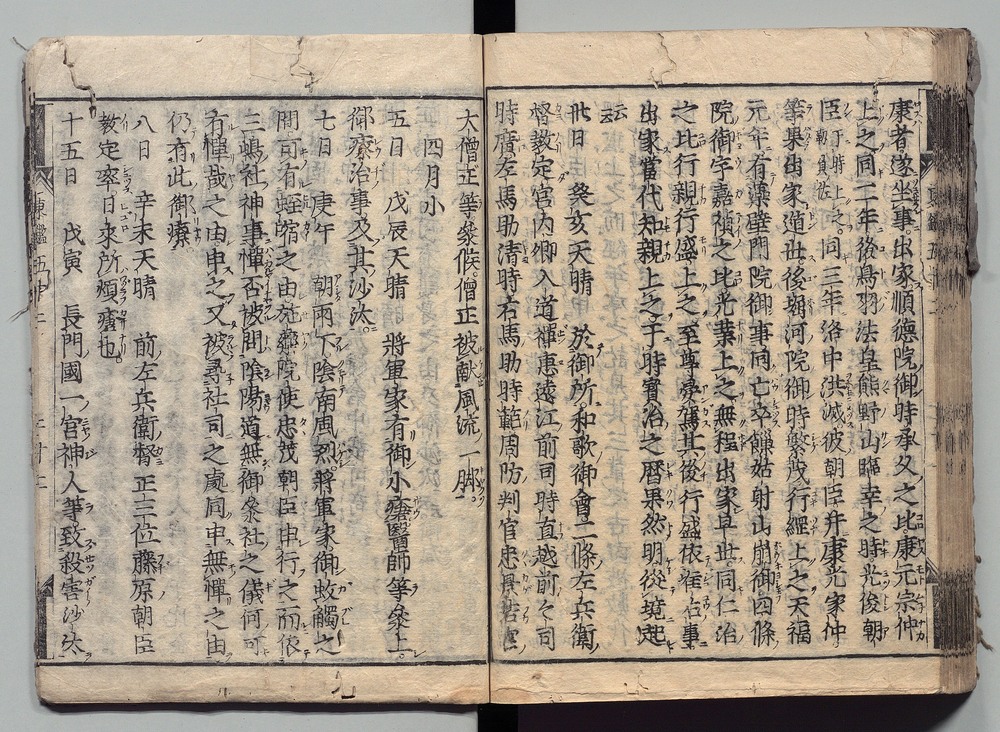 康者遂坐事出家順德院御時承久之比康元宗仲
上之同二年後鳥羽法皇熊野山臨幸之時光俊朝
臣于時上之同三年洛中洪滅彼朝臣并康光家仲
等果出家遁世後堀河院御時繁茂行經上之天福
元年有藻壁門院御事同亡卒雖姑射山崩御四條
院御宇嘉禎之比光葉上之無程出家早世同仁治
之比行親行盛上之至尊夢駕其後行盛依有事
出家當代知親上之于時寶治之曆果然明從境起
云云
廿日 癸亥天晴 於御所和歌御會二條左兵衛
督教定宮内卿入道禪惠遠江前司時直越前々司
時廣左馬助清時右馬助時範周防判官忠景若宮
大僧正等參候僧正被獻風流一脚
四月小
五日 戊辰天晴 將軍家有御小瘡醫師等參上
御療治事及其沙汰
七日 庚午 朝雨下陰南風烈將軍家御蚊觸之
間可有蛭飼之由施藥院使忠茂朝臣申行之而依
三嶋社神事憚否被問陰陽道無御參社之儀何可
有憚哉之由申之又被尋社司之處同申無憚之由
仍有此御療
八日 辛未天晴 前左兵衛督正三位藤原朝臣
教定卒日來所煩癰也
十五日 戊寅 長門國一宮神人等致殺害沙汰
東鑑五十二